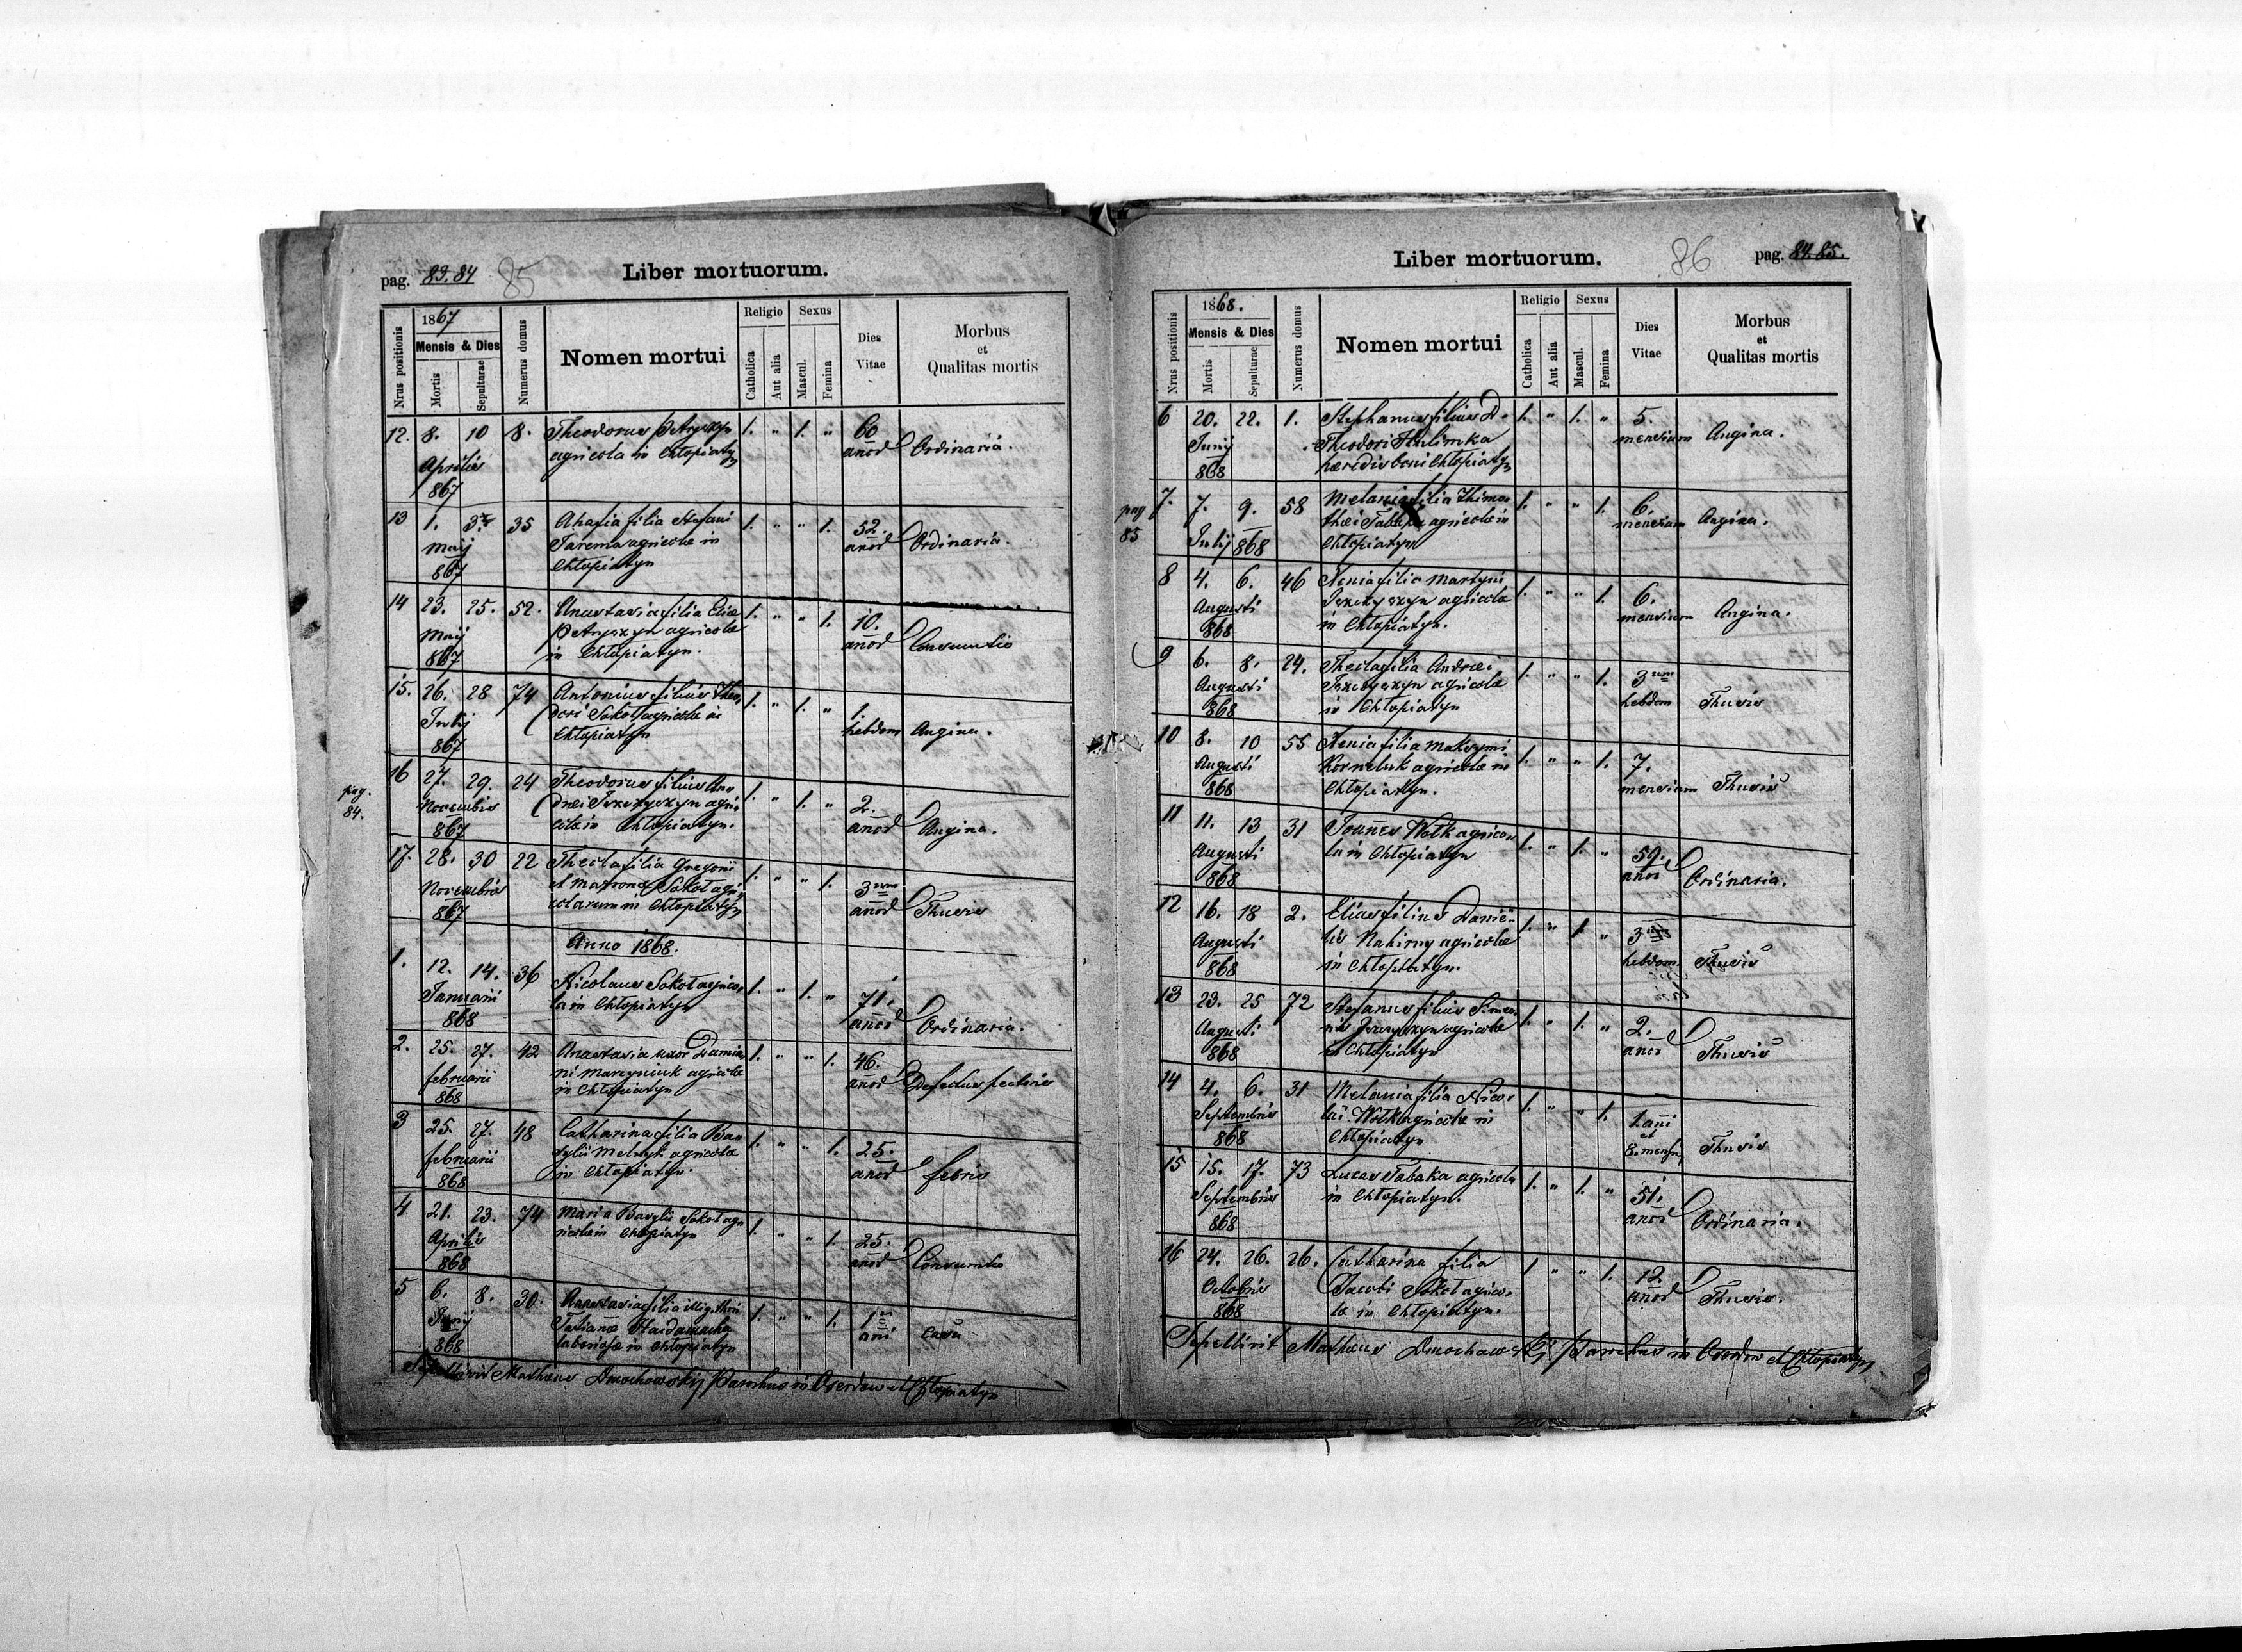 pag. 83.84 85 Liber mortuorum.
Nrus positionis
1867
Mensis & Dies
Mortis
Sepulturae
Numerus domus
Nomen mortui
Religio
Catholica
Aut alia
Sexus
Mascul.
Femina
Dies
Vitae
Morbus
et
Qualitas mortis
12. 8. 10 8. Theodorus Petryszyn 1. " 1. " 60
Aprilis agricola in Chłopiatyn anor Ordinaria.
867
13 1. 3 35 Ahafia filia Stefani 1. " " 1. 52.
Maij Jarema agricolae in anor Ordinaria.
867 Chłopiatyn
14 23. 25. 52. Anastasia filia Eliae 1. " " 1. 10.
Maij Petryszyn agricolae anor Consumtio
867 in Chłopiatyn.
15. 26. 28 74 Antonius filius Theo, 1. " 1. " 1.
Julij dori Sokoł agricolae in hebdom Angina.
867 Chłopiatyn
pag.
84.
16 27. 29. 24 Theodorus filius An, 1. " 1. " 2.
Novembris drei agri, anor Angina.
867 colae in Chłopiatyn.
17. 28. 30 22 Thecla filia Gregorii 1. " " 1. 3um
Novembris et Matronae Sokoł agri, anor Thusis
867 colarum in Chłopiatyn
Anno 1868.
1. 12. 14. 36 Nicolaus Sokoł agrico, 1. " 1. " 71.
Januarii la in Chłopiatyn anor Ordinaria.
868
2. 25. 27. 42 Anastasia uxor Damia, 1. " " 1. 46.
februarii ni Marcyniuk agricolae anor Defectus pectoris
868 in Chłopiatyn
3 25. 27. 48 Catharina filia Ba, 1. " " 1. 25.
februarii sylii Melnyk agricolae anor febris
868 in Chłopiatyn.
4 21. 23. 74 Maria Basylii Sokoł ag, 1. " " 1. 25.
Aprilis ricolae in Chłopiatyn anor Consumtio
868
5 6. 8. 30. Anastasia filia illigithori 1. " " 1. 1
Junij Tatianae ani casu
868 laboriosae in Chłopiatyn
Sepellivit Mathaeus Dmochowskij Parochus in Oserdow et Chłopiatyn
Liber mortuorum. 86 pag. 84.85.
Nrus positionis
1868.
Mensis & Dies
Mortis
Sepulturae
Numerus domus
Nomen mortui
Religio
Catholica
Aut alia
Sexus
Mascul.
Femina
Dies
Vitae
Morbus
et
Qualitas mortis
6 20. 22. 1. Stephanus filius D. 1. " 1. " 5.
Junij Theodori Hulimka mensium Angina.
868 haeredis boni Chłopiatyn
pag
85
7. 7. 9. 58 Melania filia Thimo, 1. " " 1. 6.
Julij 868 thei Tabaka agricolae in mensium Angina.
Chłopiatyn
8 4. 6. 46 Xenia filia Martyni 1. " " 1. 6.
Augusti agricolae mensium Angina.
868 in Chłopiatyn.
9 6. 8. 24. Thecla filia Andreei 1. " " 1. 3um
Augusti agricolae hebdom Thusis
868 in Chłopiatyn
10 8. 10 55 Xenia filia Maksymi 1. " " 1. 7.
Augusti Korneluk agricolae in mensium Thusis
868 Chłopiatyn.
11 11. 13 31 Joannes Wołk agrico, 1. " 1. " 59.
Augusti la in Chłopiatyn anor Ordinaria.
868
12 16. 18 2. Elias filius Danie, 1. " 1. " 3um
Augusti lis Nahirny agricolae hebdom. Thusis
868 in Chłopiatyn.
13 23. 25 72 Stefanus filius Simeo, 1. " 1. " 2.
Augusti nis agricolae anor Thusis
868 in Chłopiatyn
14 4. 6. 31 Melania filia Nico, 1. " " 1. 1. ani
Septembris lai Wołk agricolae in et
868 Chłopiatyn 8. mens Thusis
15 15. 17. 73 Lucas Tabaka agricola 1. " 1. " 51.
Septembris in Chłopiatyn. anor Ordinaria.
868
16 24. 26. 26. Catharina filia 1 " " 1. 12.
Octobris Jacobi Sokoł agrico, anor Thusis.
868 lae in Chłopiatyn.
Sepellivit Mathaeus Dmochowskij Parochus in Oserdow et Chłopiatyn